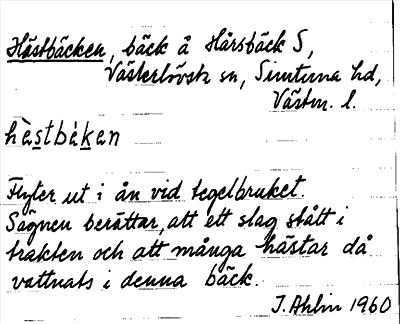 Hästbäcken, bäck å Hårsbäck S,
Västerlövsta sn, Simtuna hd,
Västm. l.
hèstbäken
Flyter ut i ån vid tegelbruket.
Sägnen berättar, att ett slag stått i
trakten och att många hästar då
vattnats i denna bäck.
J. Ahlin 1960